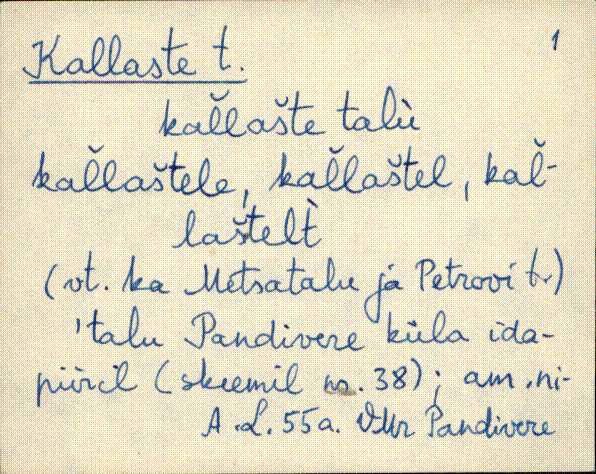 Kallaste t. 1
kaľlašte talù
kaľlaštele, kaľlaštel, kaľ-
laštelt̀
(vt. ka Metsatalu ja Petrovi t.)
'talu Pandivere küla ida-
piiril (skeemil nr. 38); am. ni-
A.L. 55a. VMr Pandivere